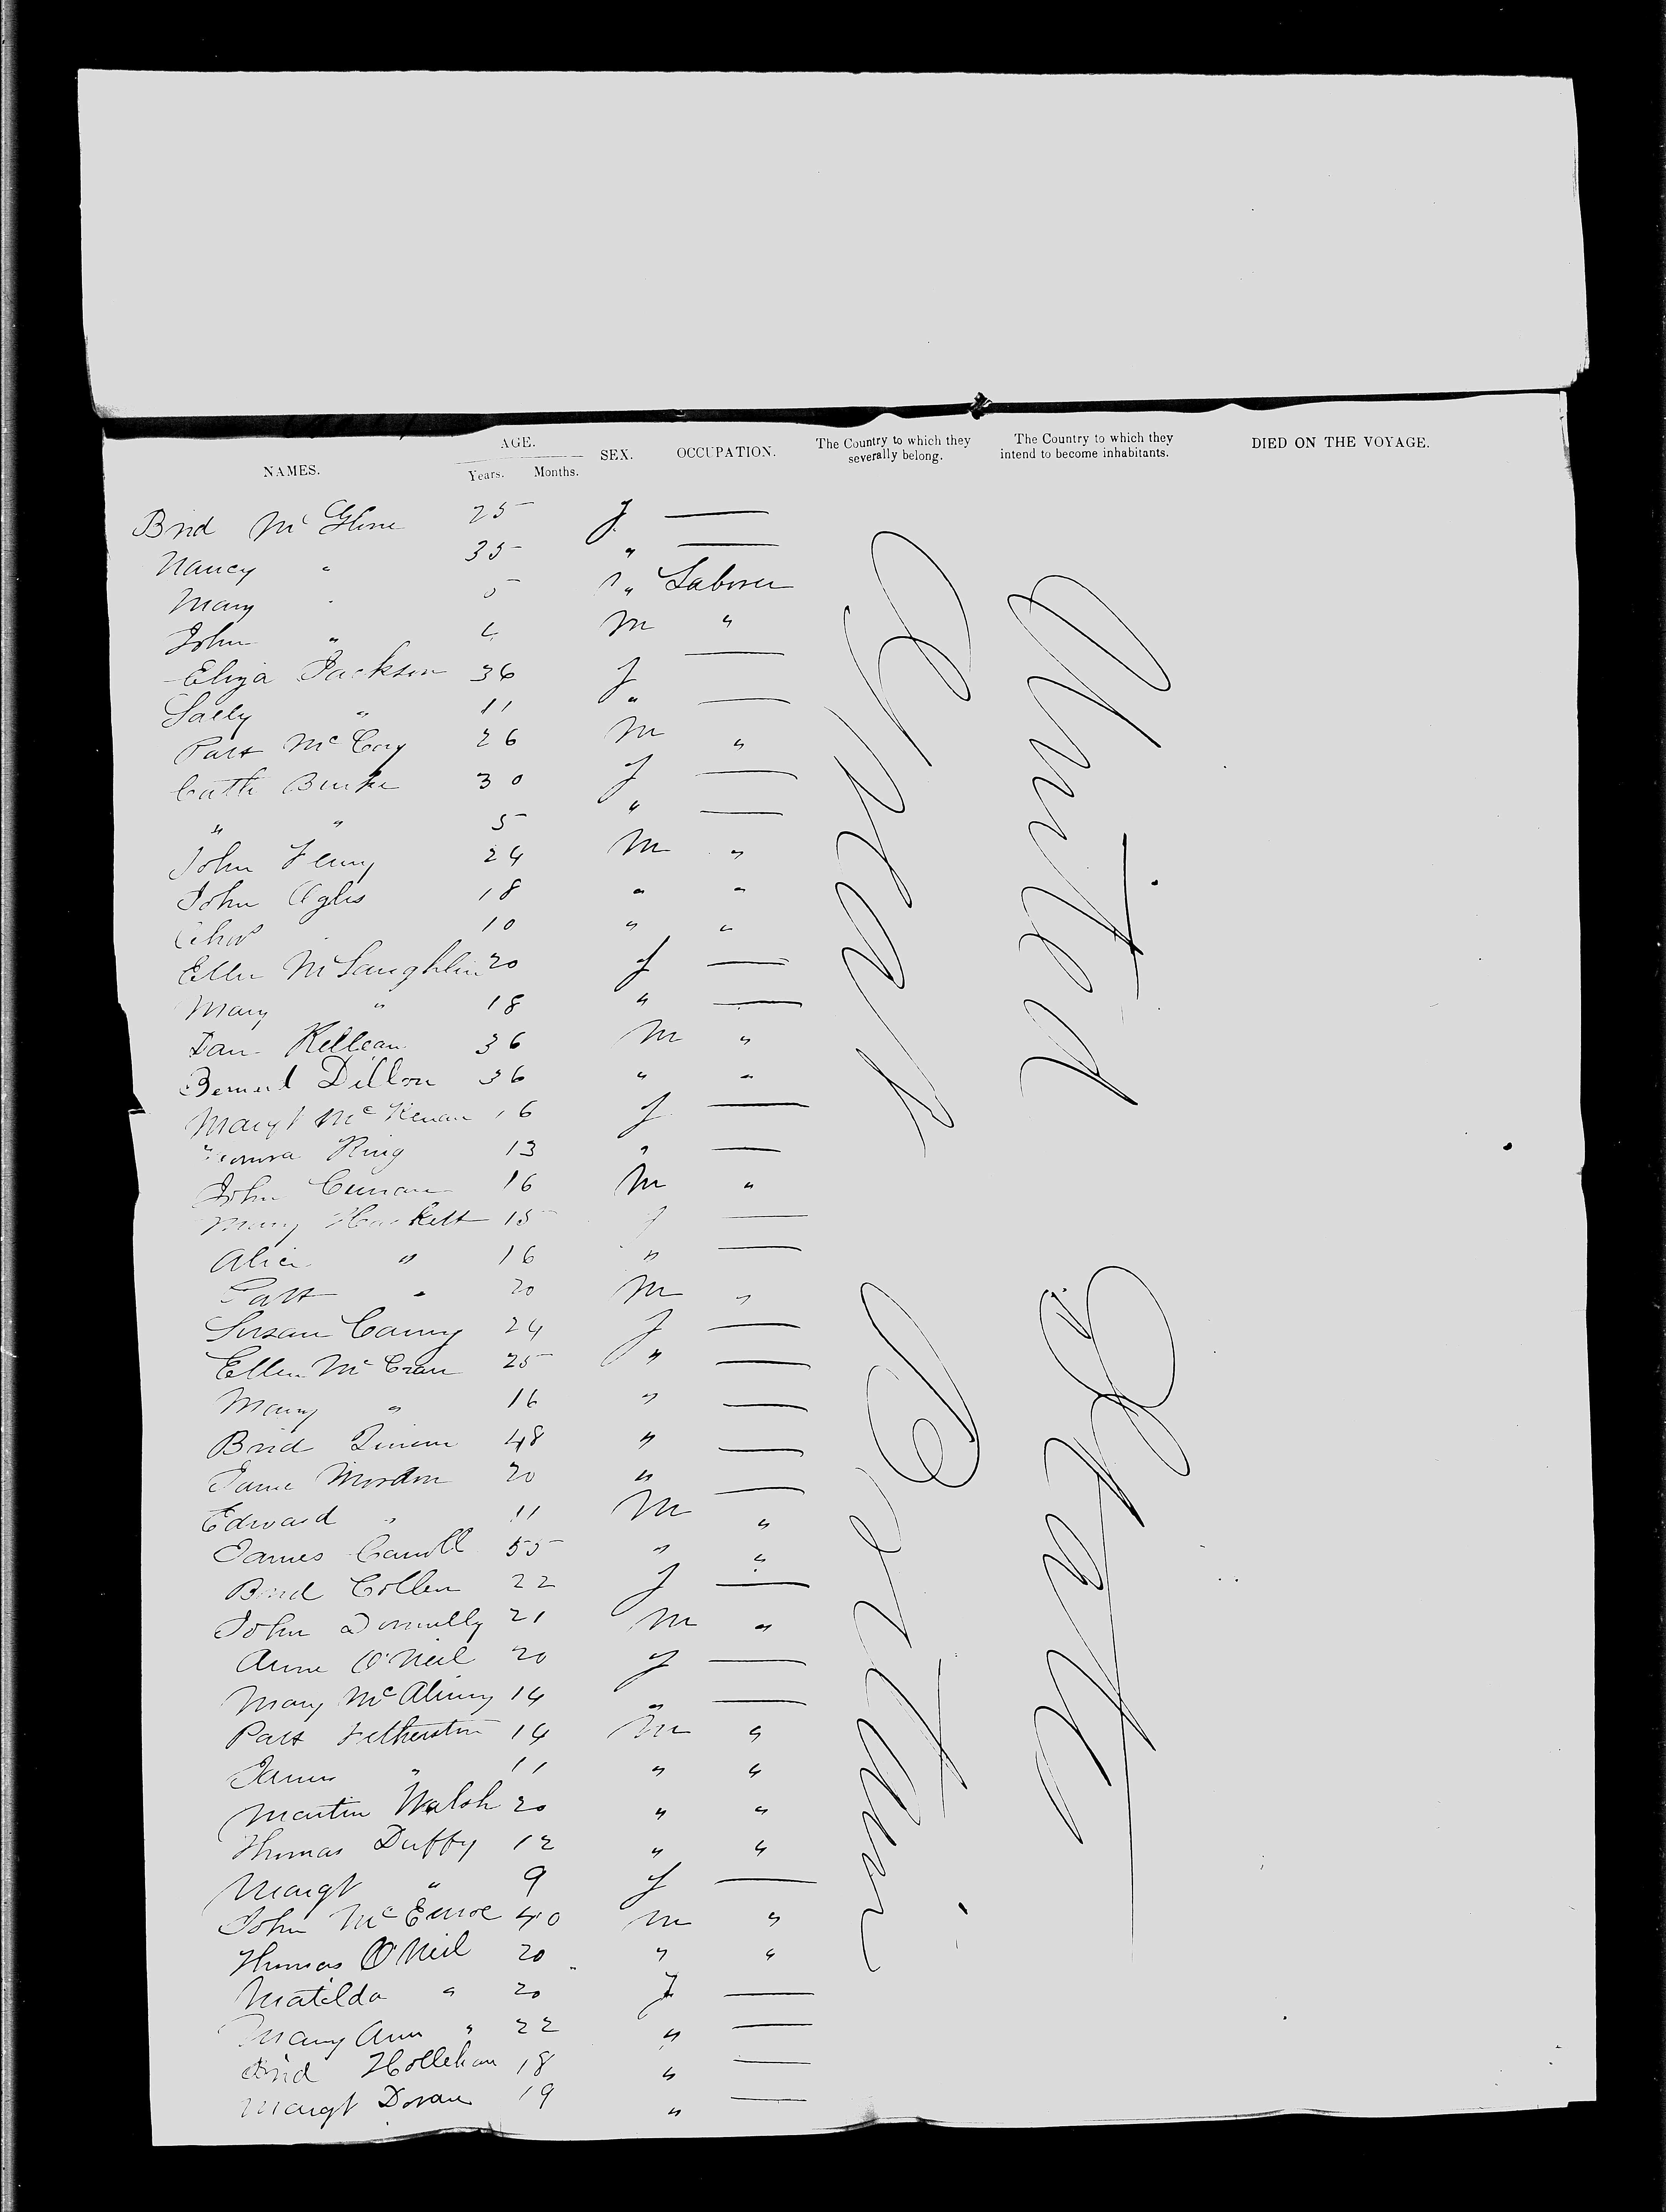 NAMES. AGE. Years. Months. SEX. OCCUPATION. The Country to which they severally belong. The Country to which they intend to become inhabitants. DIED ON THE VOYAGE.
Brid Mc Glone 25 f —
Nancy " 35 " —
Mary " 5 " Laborer
John " 4 M "
Eliza Jackson 36 f —
Sally " 11 " —
Patt McCoy 26 M "
Cath Burke 30 f —
" " 5 " —
John Feeny 24 M "
John Agles 18 " "
10 " "
Ellen McLaughlin 20 f —
Mary " 18 " —
Dan Kellean 36 M "
Bernard Dillon 36 " "
Margt McKenan 16 f —
Honora King 13 " —
John Curran 16 M "
Mary Hackett 15 f —
Alice " 16 " —
Patt " 20 M "
Susan Canny 24 f —
Ellen McCran 25 " —
Mary " 16 " —
Brid 48 " —
Jane Mordon 20 " —
Edward " 11 M "
James Carroll 55 " "
Brid Collen 22 f —
John Donnelly 21 M "
Anne O'Neil 20 f —
Mary McAlinny 14 " —
Patt Fetherston 14 M "
James " 11 " "
Martin Walsh 20 " "
Thomas Duffy 12 " "
Margt " 9 f —
John McEnroe 40 M "
Thomas O'Neil 20 " "
Matilda " 20 f —
Mary Ann " 22 " —
Brid Hollehan 18 " —
Margt Doran 19 " —
Great Britain
United State